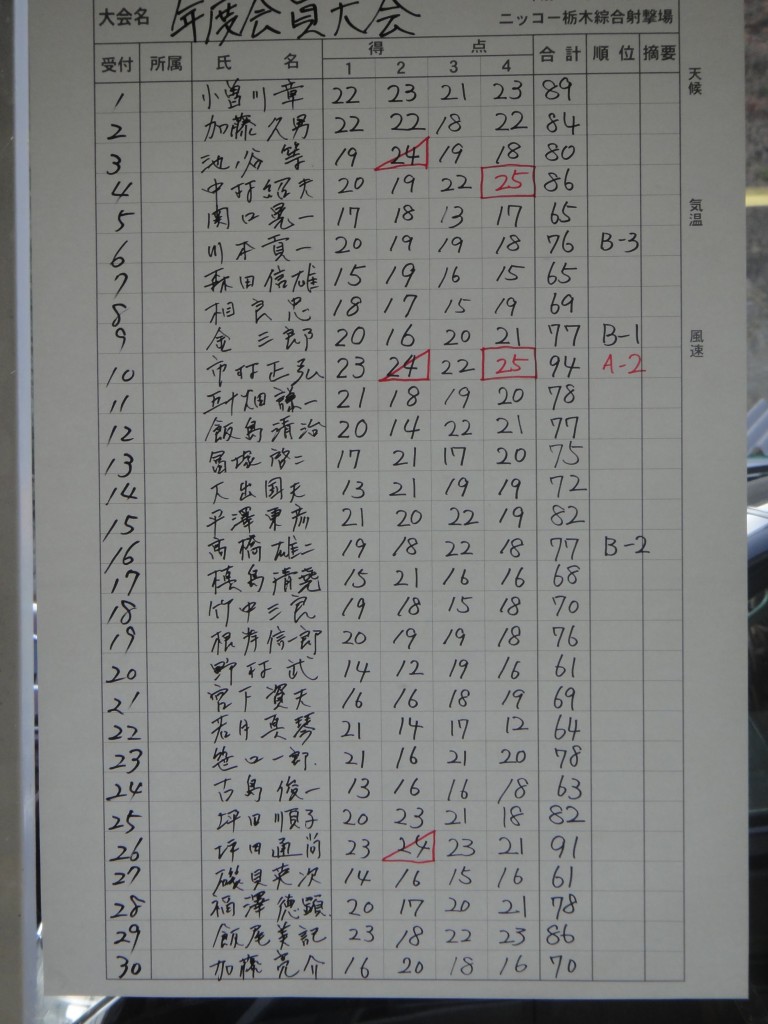 大会名 年度会員大会 ニッコー栃木綜合射撃場
受付 所属 氏名 得点 合計 順位 摘要
1 2 3 4
天候
気温
風速
1 小曽川章 22 23 21 23 89
2 加藤久男 22 22 18 22 84
3 池谷等 19 24 19 18 80
4 中村紹夫 20 19 22 25 86
5 関口晃一 17 18 13 17 65
6 川本貢一 20 19 19 18 76 B-3
7 森田信雄 15 19 16 15 65
8 相良忠 18 17 15 19 69
9 金三郎 20 16 20 21 77 B-1
10 市村正弘 23 24 22 25 94 A-2
11 五十畑謙一 21 18 19 20 78
12 飯島清治 20 14 22 21 77
13 冨塚啓二 17 21 17 20 75
14 大出国夫 13 21 19 19 72
15 平澤東彦 21 20 22 19 82
16 高橋雄二 19 18 22 18 77 B-2
17 槙島清堯 15 21 16 16 68
18 竹中三良 19 18 15 18 70
19 根岸信一郎 20 19 19 18 76
20 野村武 14 12 19 16 61
21 宮下資夫 16 16 18 19 69
22 若月真琴 21 14 17 12 64
23 笹口一郎 21 16 21 20 78
24 古島俊一 13 16 16 18 63
25 坪田順子 20 23 21 18 82
26 坪田通尚 23 24 23 21 91
27 磯貝英次 14 16 15 16 61
28 福澤徳顕 20 17 20 21 78
29 飯尾美記 23 18 22 23 86
30 加藤亮介 16 20 18 16 70